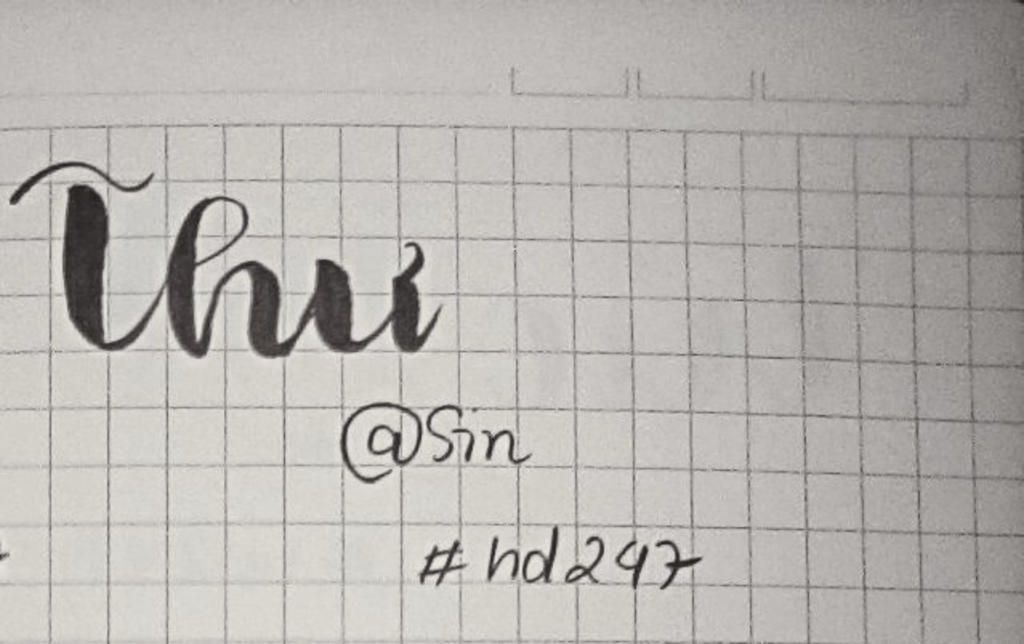 Thư
@Sin
#hd247